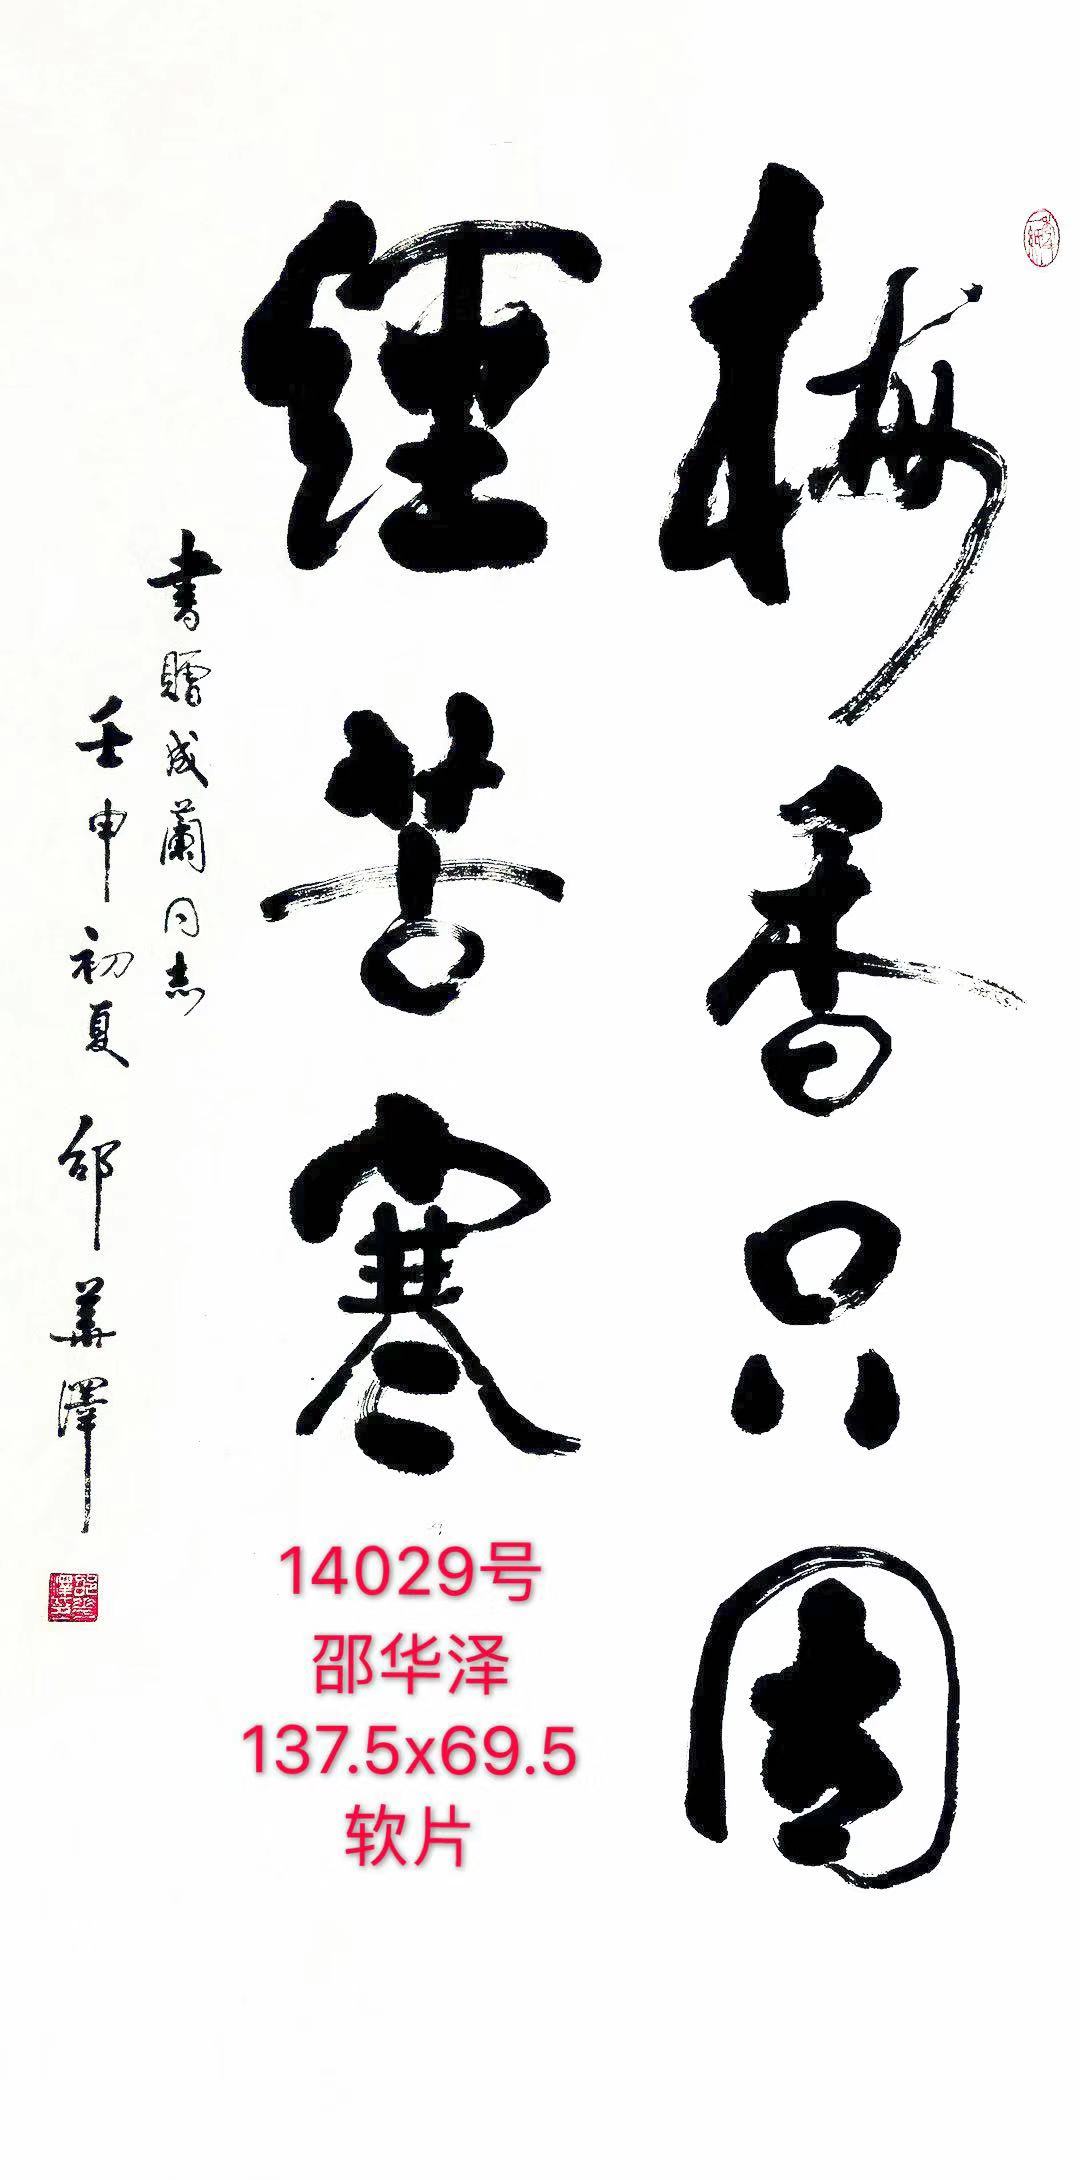 梅香只因
經苦寒
書贈成蘭同志
壬申初夏 邵華澤
14029号
邵华泽
137.5x69.5
软片